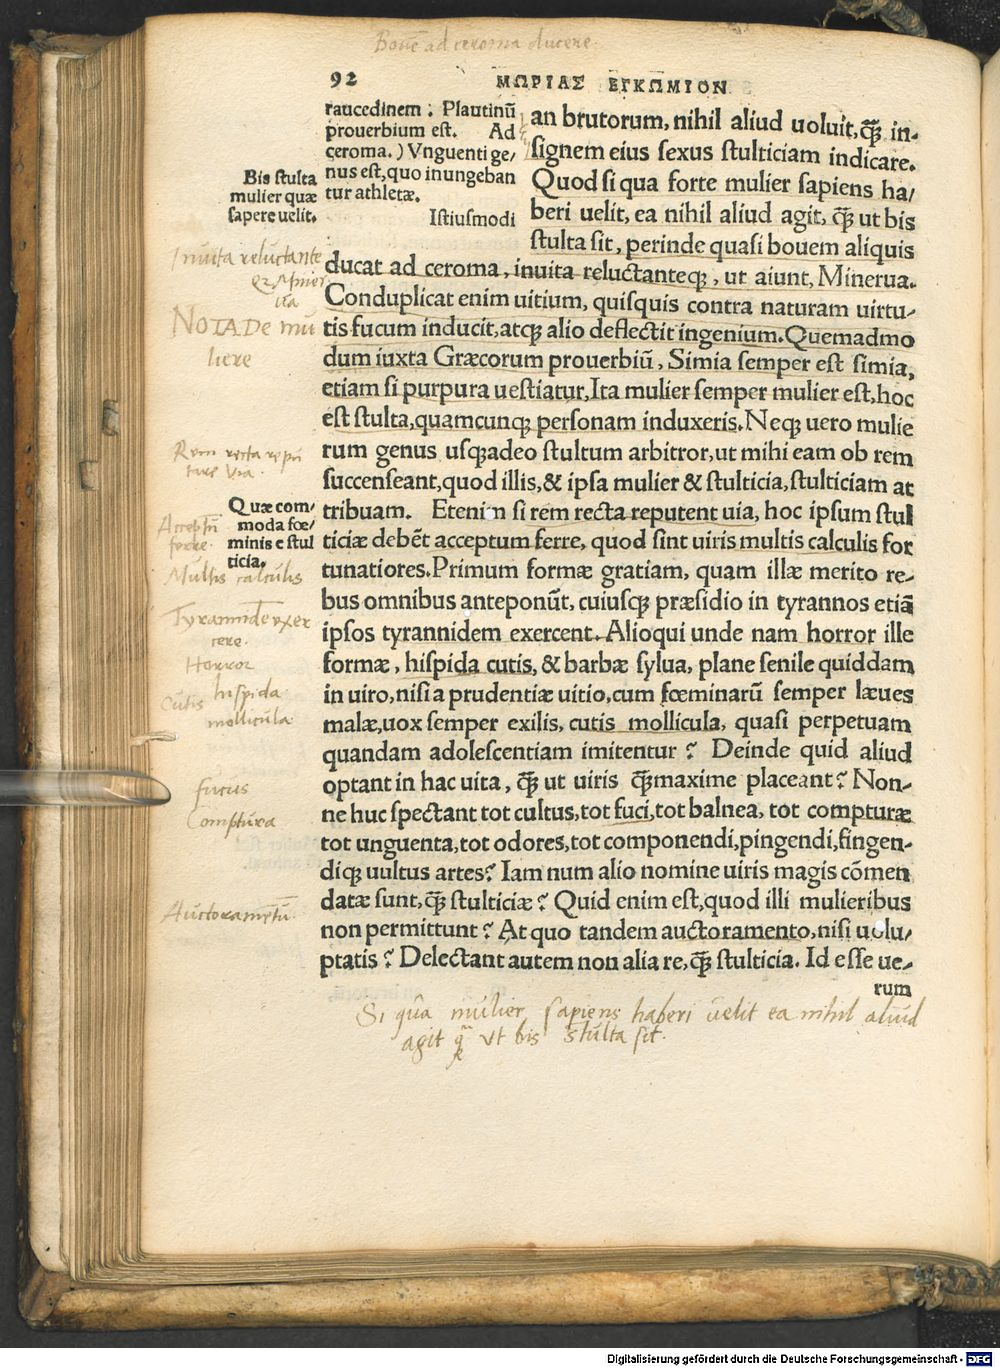 Bouē ad ceroma ducere.
92 ΜΩΡΙΑΣ ΕΓΚΩΜΙΟΝ
raucedinem : Plautinū
prouerbium est. Ad
ceroma.) Vnguenti ge/
nus est, quo inungeban
tur athletæ.
Istiusmodi
an brutorum, nihil aliud uoluit, q̃ in-
signem eius sexus stulticiam indicare.
Quod si qua forte mulier sapiens ha/
beri uelit, ea nihil aliud agit, q̃ ut bis
stulta sit, perinde quasi bouem aliquis
ducat ad ceroma, inuita reluctanteq;, ut aiunt, Minerua.
Conduplicat enim uitium, quisquis contra naturam uirtu-
tis fucum inducit, atq; alio deflectit ingenium. Quemadmo
dum iuxta Græcorum prouerbiū, Simia semper est simia,
etiam si purpura uestiatur, Ita mulier semper mulier est, hoc
est stulta, quamcunq; personam induxeris. Neq; uero mulie
rum genus usq;adeo stultum arbitror, ut mihi eam ob rem
succenseant, quod illis, & ipsa mulier & stulticia, stulticiam at
tribuam. Etenim si rem recta reputent uia, hoc ipsum stul
ticiæ debēt acceptum ferre, quod sint uiris multis calculis for
tunatiores. Primum formæ gratiam, quam illæ merito re-
bus omnibus anteponūt, cuiusq; præsidio in tyrannos etiā
ipsos tyrannidem exercent. Alioqui unde nam horror ille
formæ, hispida cutis, & barbæ sylua, plane senile quiddam
in uiro, nisi a prudentiæ uitio, cum fœminarū semper læues
malæ, uox semper exilis, cutis mollicula, quasi perpetuam
quandam adolescentiam imitentur? Deinde quid aliud
optant in hac uita, q̃ ut uiris q̃maxime placeant? Non-
ne huc spectant tot cultus, tot fuci, tot balnea, tot compturæ
tot unguenta, tot odores, tot componendi, pingendi, fingen-
diq; uultus artes? Iam num alio nomine uiris magis cōmen
datæ sunt, q̃ stulticiæ? Quid enim est, quod illi mulieribus
non permittunt? At quo tandem auctoramento, nisi uolu/
ptatis? Delectant autem non alia re, q̃ stulticia. Id esse ue-
rum
Bis stulta
mulier quæ
sapere uelit.
Inuita reluctante
NOTA De mu
liere
Rem recta repu
tare via.
Quæ com/
moda fœ/
minis e stul
ticia.
Acceptū
ferre.
Multis calculis
Tyrannidē exer
cere.
Horror
hispida
Cutis
mollicula
fucus
Comptura
Auctoramētū.
Si qua mulier sapiens haberi uelit ea nihil aliud
agit q̃ vt bis stulta sit.
Digitalisierung gefördert durch die Deutsche Forschungsgemeinschaft - DFG